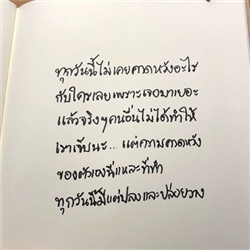 ทุกวันนี้ไม่เคยคาดหวังอะไร
กับใครเลยเพราะเจอมาเยอะ
แล้วจริงๆคนอื่นไม่ได้ทำให้
เราเจ็บนะ... แต่ความคาดหวัง
ของตัวเองนี่แหละที่ทำ
ทุกวันนี้มีแต่ปลงและปล่อยวาง